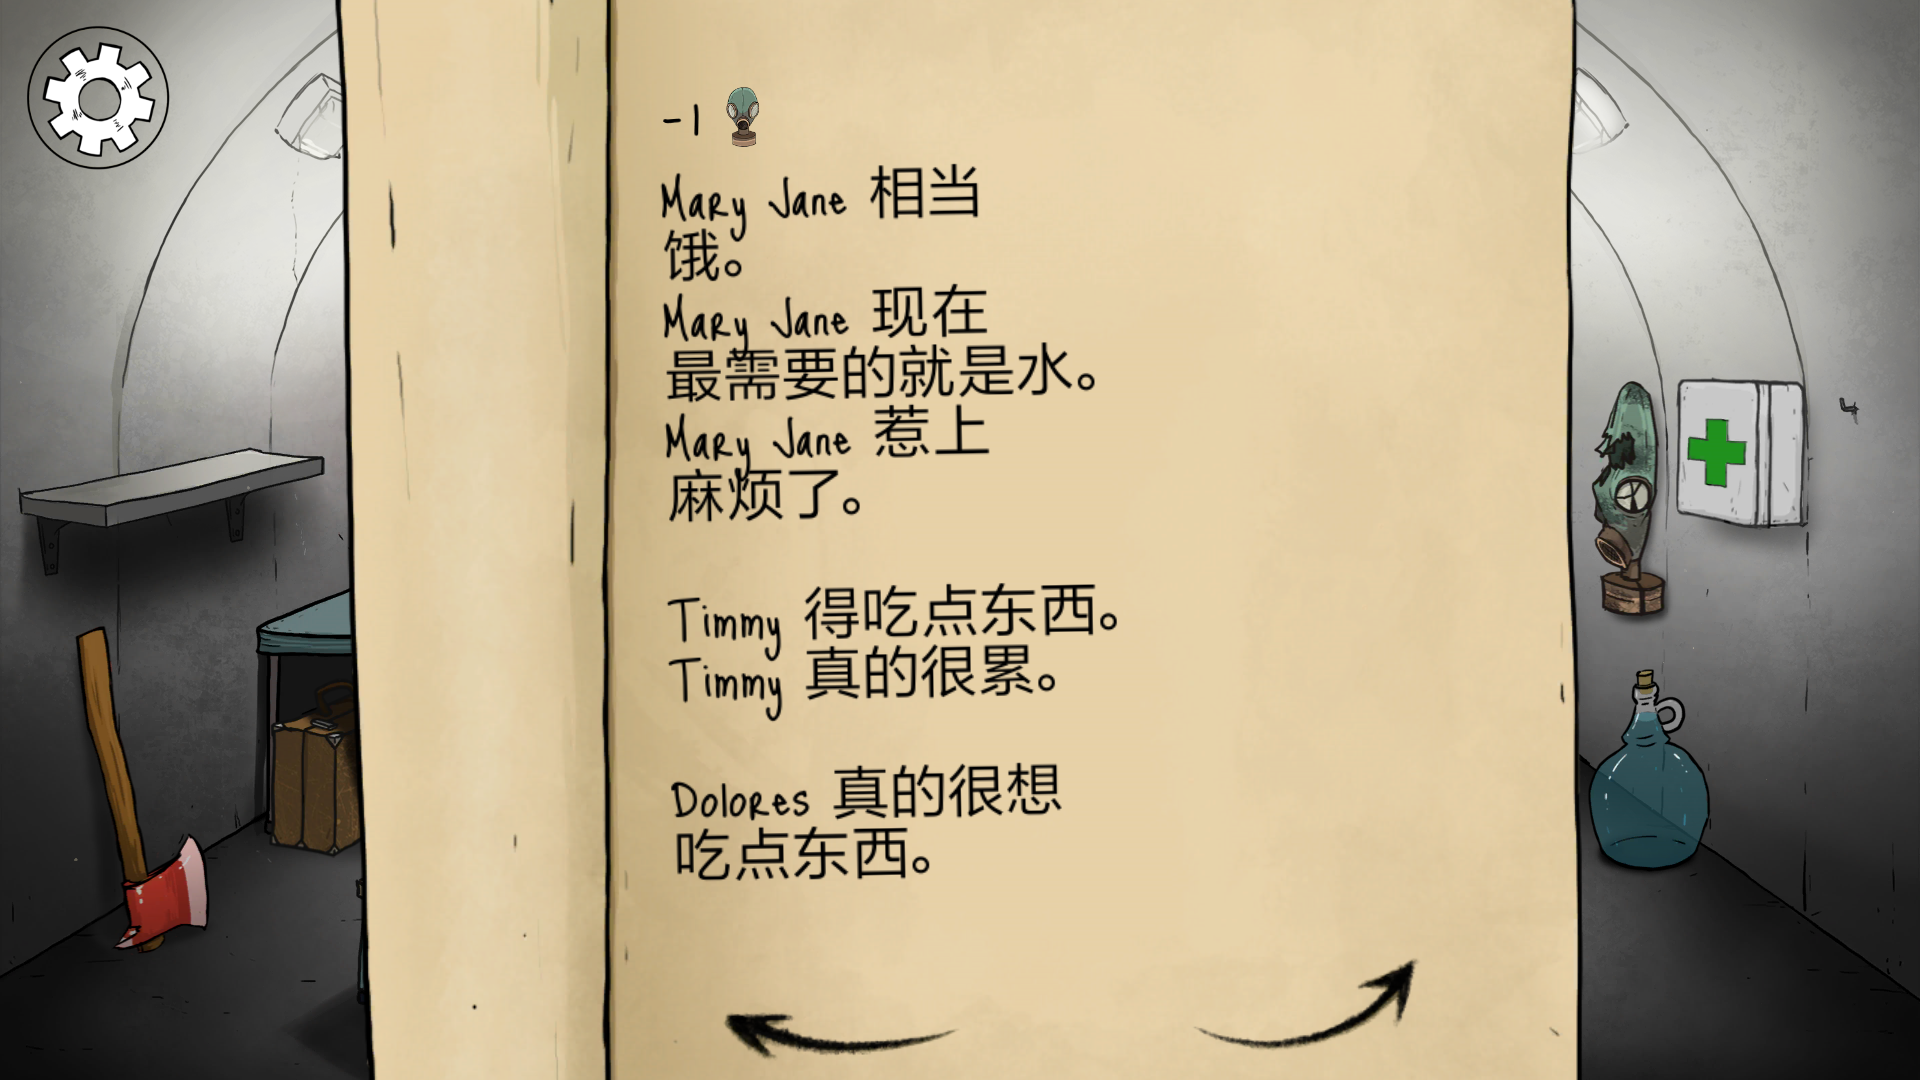 -1
Mary Jane 相当
饿。
Mary Jane 现在
最需要的就是水。
Mary Jane 惹上
麻烦了。
Timmy 得吃点东西。
Timmy 真的很累。
Dolores 真的很想
吃点东西。